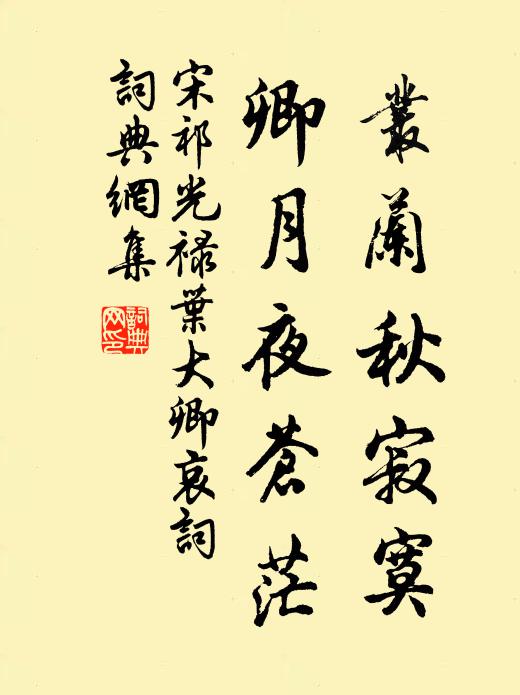 叢蘭秋寂寞
卿月夜蒼茫
宋祁光祿葉大卿哀詞
詞典網集
詞典網印